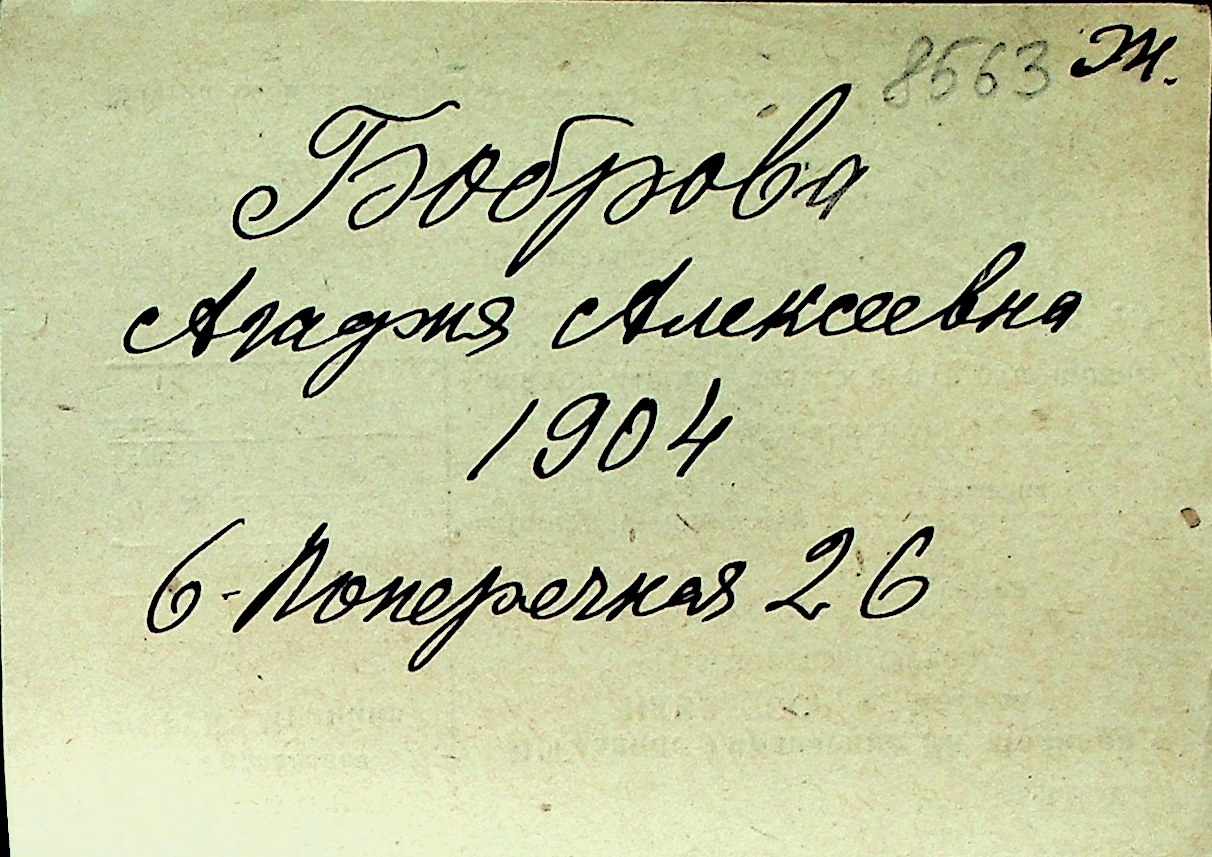 8563 Ж.
Боброва
Агафия Алексеевна
1904
6-Поперечная 26